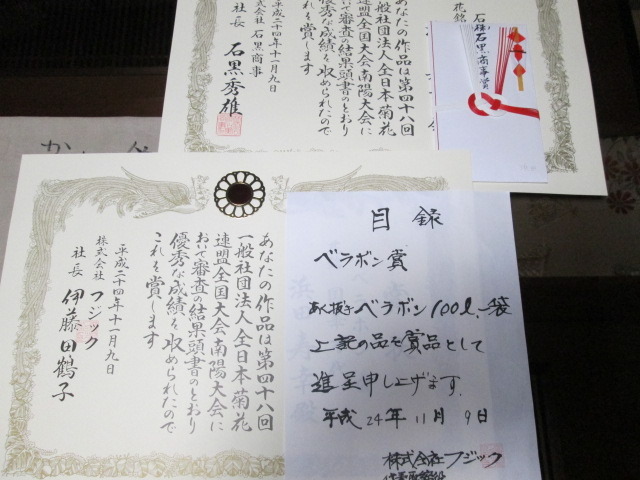 あなたの作品は第四十八回
一般社団法人全日本菊花
連盟全国大会南陽大会に
おいて審査の結果頭書のとおり
優秀な成績を収められたので
これを賞します
平成二十四年十一月九日
株式会社 石黒商事
社長 石黒秀雄
石黒商事賞
あなたの作品は第四十八回
一般社団法人全日本菊花
連盟全国大会南陽大会に
おいて審査の結果頭書のとおり
優秀な成績を収められたので
これを賞します
平成二十四年十一月九日
株式会社 フジック
社長 伊藤田鶴子
目録
ベラボン賞
あく抜きベラボン100l、一袋
上記の品を賞品として
進呈申し上げます。
平成24年11月9日
株式会社フジック